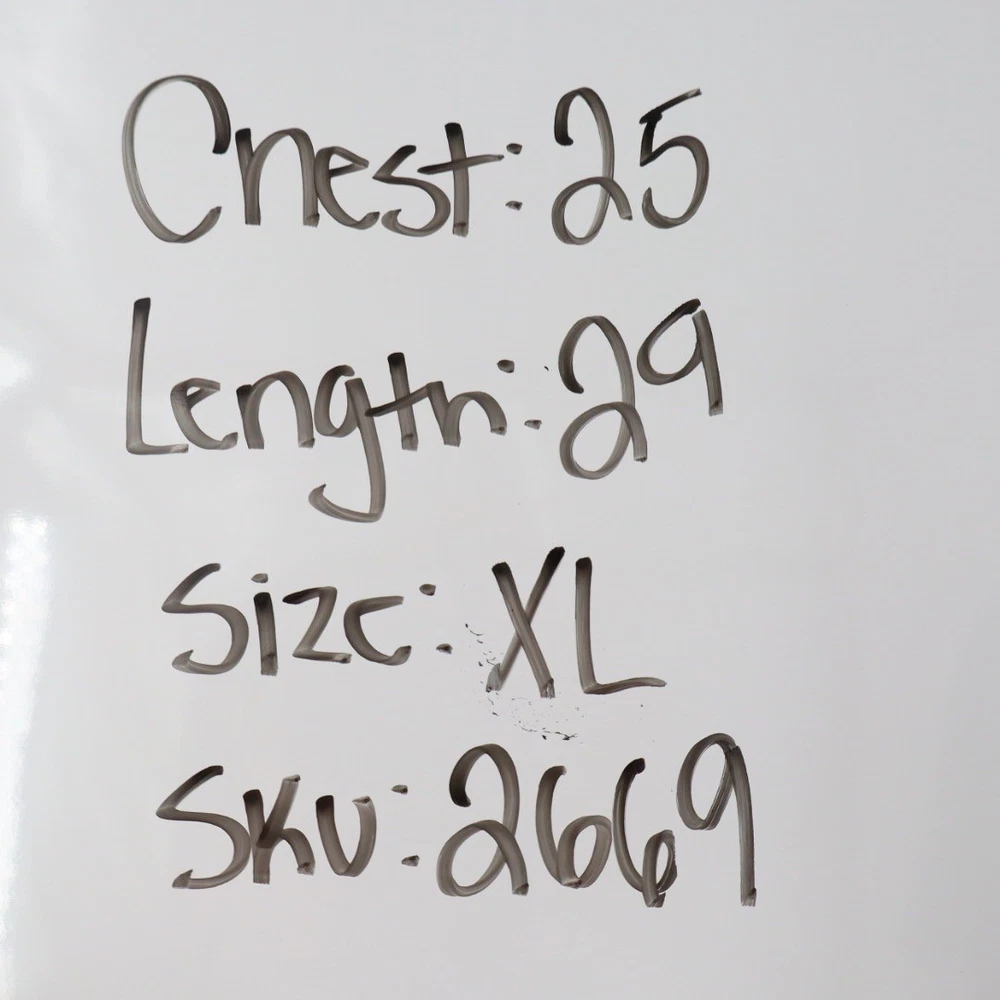 Chest: 25
Length: 29
Size: XL
SKU: 2669